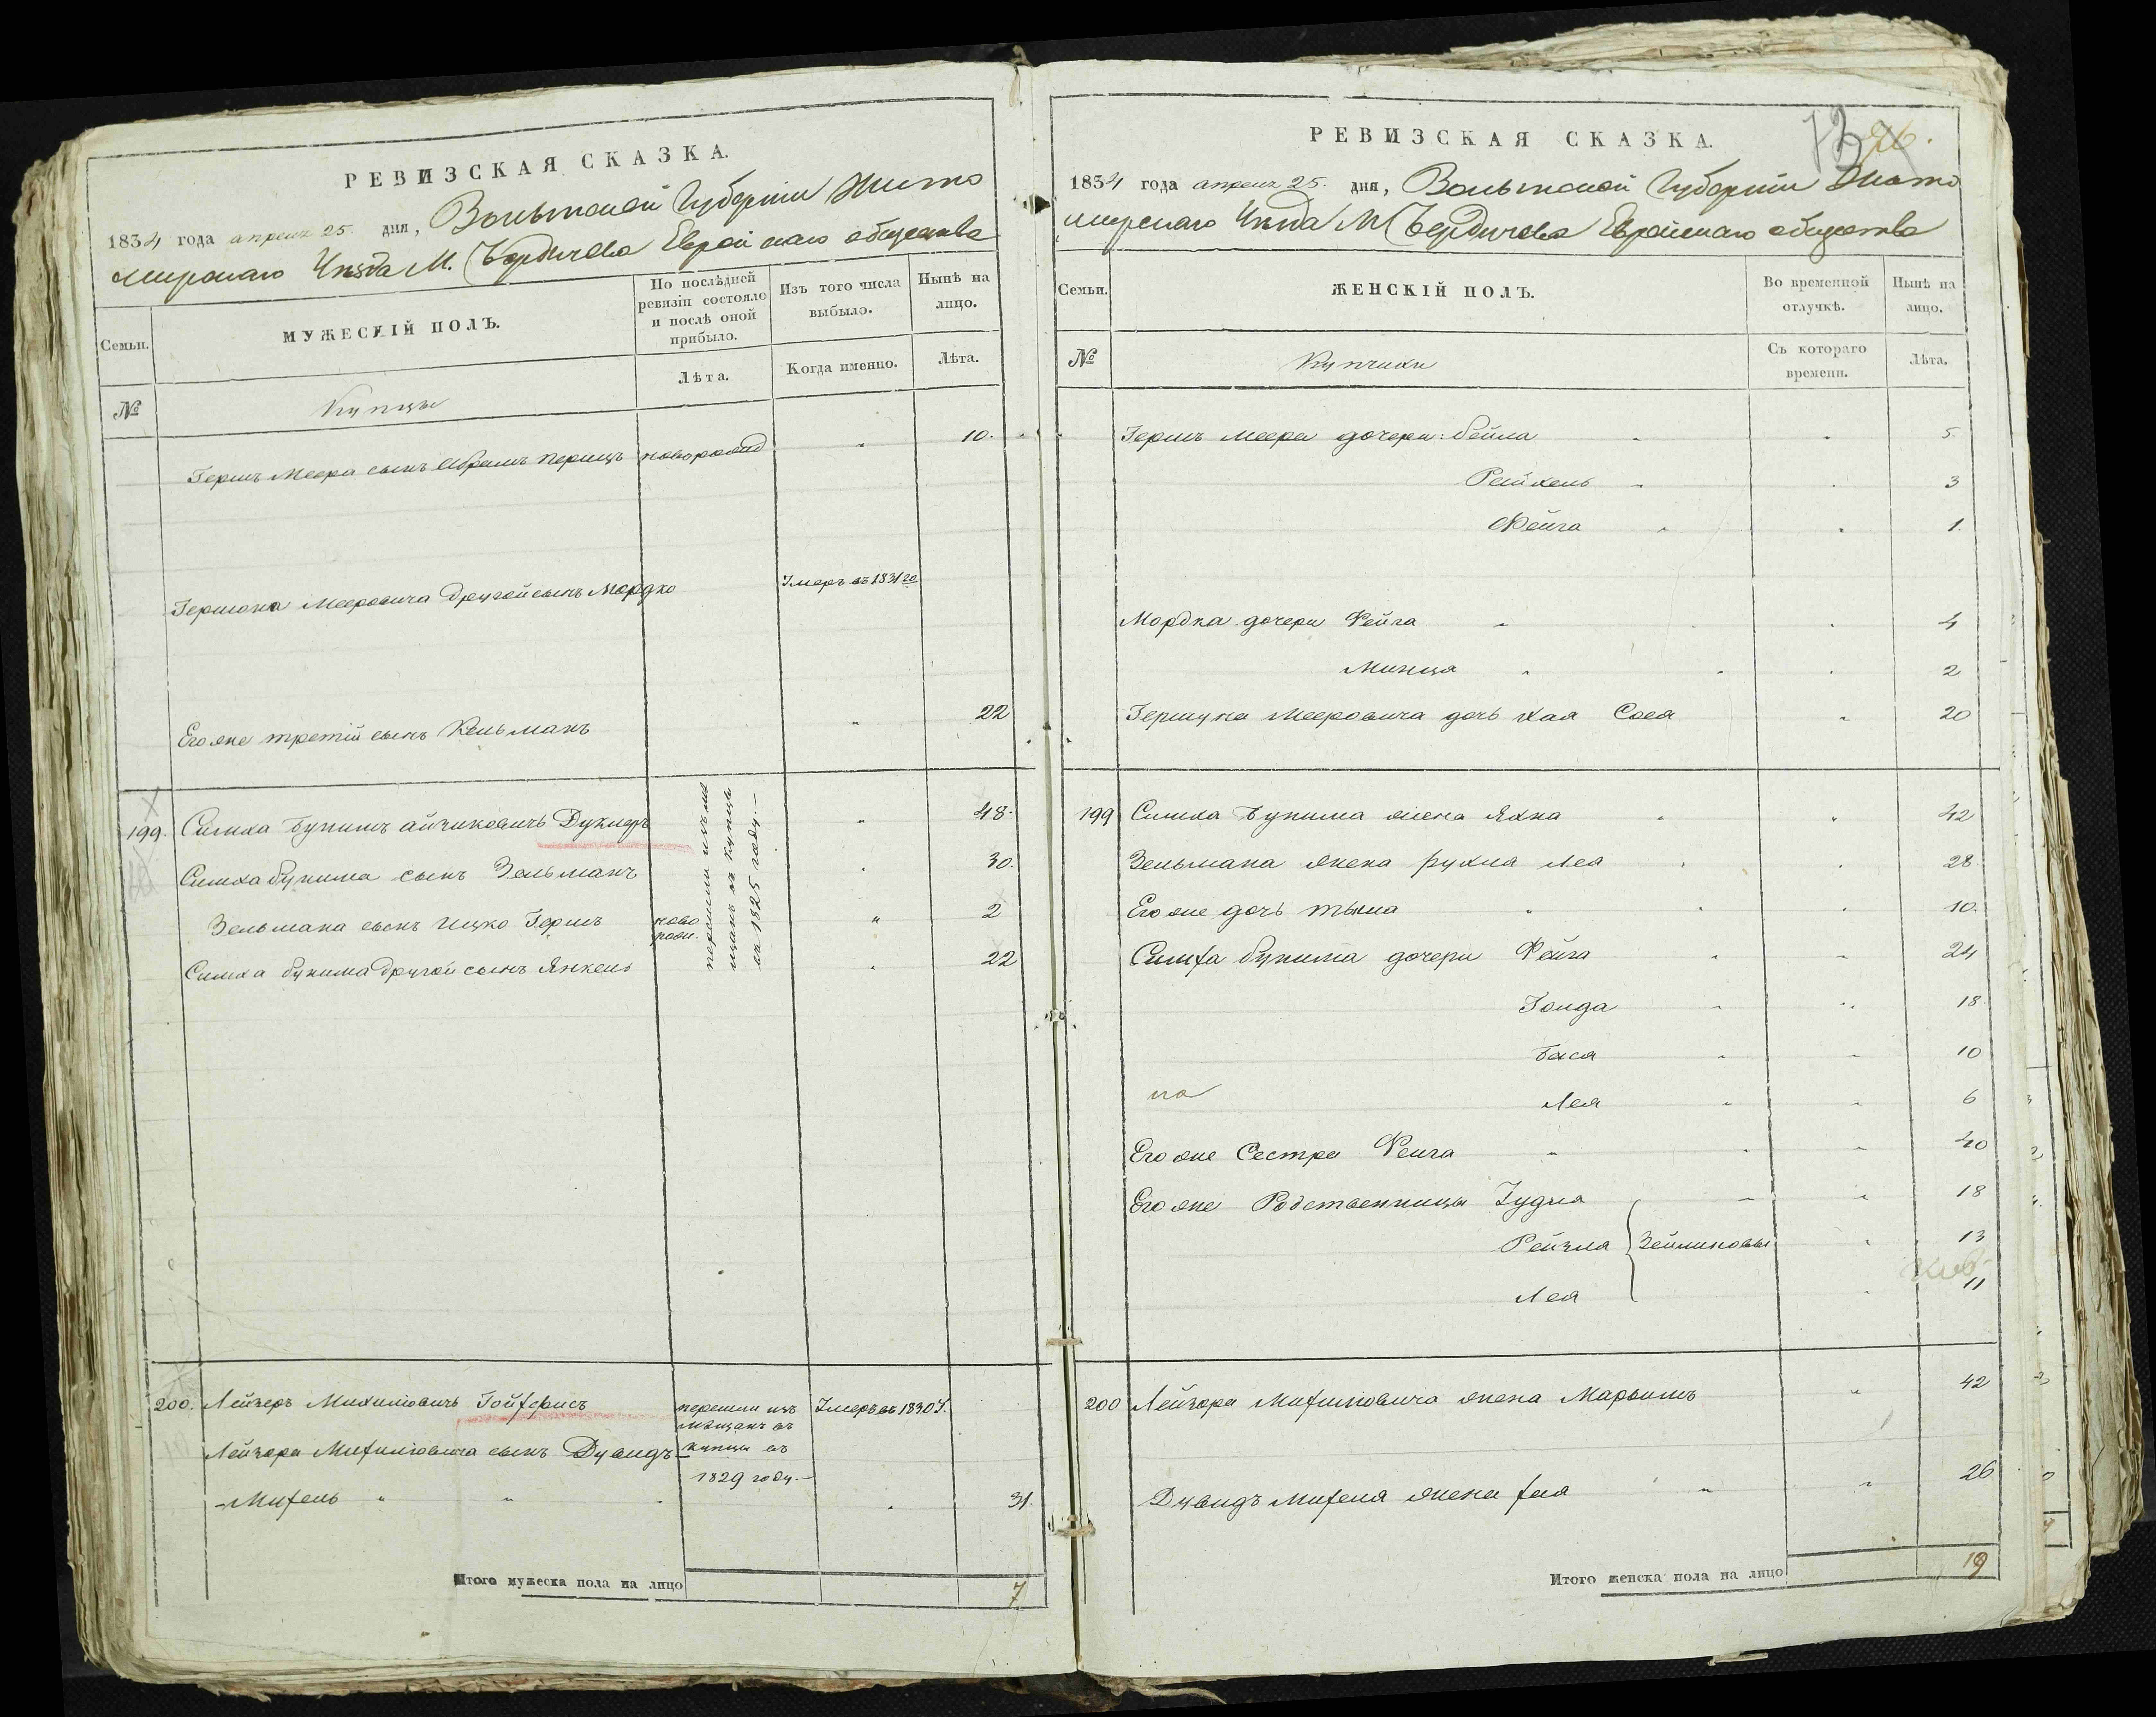 РЕВИЗСКАЯ СКАЗКА.
1834 года апреля 25. дня, Волынской Губернии Жито
мирскаго Уѣзда М. Бердичева Еврейскаго общества
Семьи.
МУЖЕСКІЙ ПОЛЪ.
По послѣдней ревизіи состояло и послѣ оной прибыло.
Изъ того числа выбыло.
Нынѣ на лицо.
№
Купцы
Лѣта.
Когда именно.
Лѣта.
Герш Меера сынъ Абрамъ Перицъ новорожд " 10.
Гершона Мееровича другой сынъ Мордко Умеръ въ 1831 го
Его же третій сынъ Кельманъ " 22
199. Симха Бунимъ Айзиковичъ " 48.
Симха Бунима сынъ Зельманъ " 30.
Зельмана сынъ Ицко Герш ново рож. " 2
Симха Бунима другой сынъ Янкель " 22
перешли изъ мѣ
щанъ въ купцы
въ 1825 году.—
200. Лейзеръ Михилiовичъ перешли изъ Умеръ въ 1830 г.
мѣщанъ въ
Лейзора Михилiовича сынъ Дувидъ— купцы въ
1829 году.—
-Михель " " " 31.
Итого мужеска пола на лицо 7
РЕВИЗСКАЯ СКАЗКА.
1834 года апреля 25. дня, Волынской Губернии Жито
мирскаго Уѣзда М Бердичева Еврейскаго общества
Семьи.
ЖЕНСКІЙ ПОЛЪ.
Во временной отлучкѣ.
Нынѣ на лицо.
№
Купчихи
Съ котораго времени.
Лѣта.
Герш Меера дочери: Бейла " " 5
Рейхель " " 3
Фейга " " 1.
Мордка дочери Фейга " " 4
Минца " " 2
Гершуна Мееровича дочь Хая Сося " 20
199 Симха Бунима жена Яхна " " 42
Зельмана жена Рухля Лея " " 28
Его же дочь " " 10.
Симха Бунима дочери Фейга " " 24
Голда " " 18
Бася " " 10
Лея " " 6
Его же Сестра Фейга " " 40
Его же Родственницы " " 18
Рейзля Зейликовы " 13
Лея " 11
200 Лейзора Михилiовича жена Марьимъ " 42
Дувидъ Михеля жена Хая " " 26
Итого женска пола на лицо 19